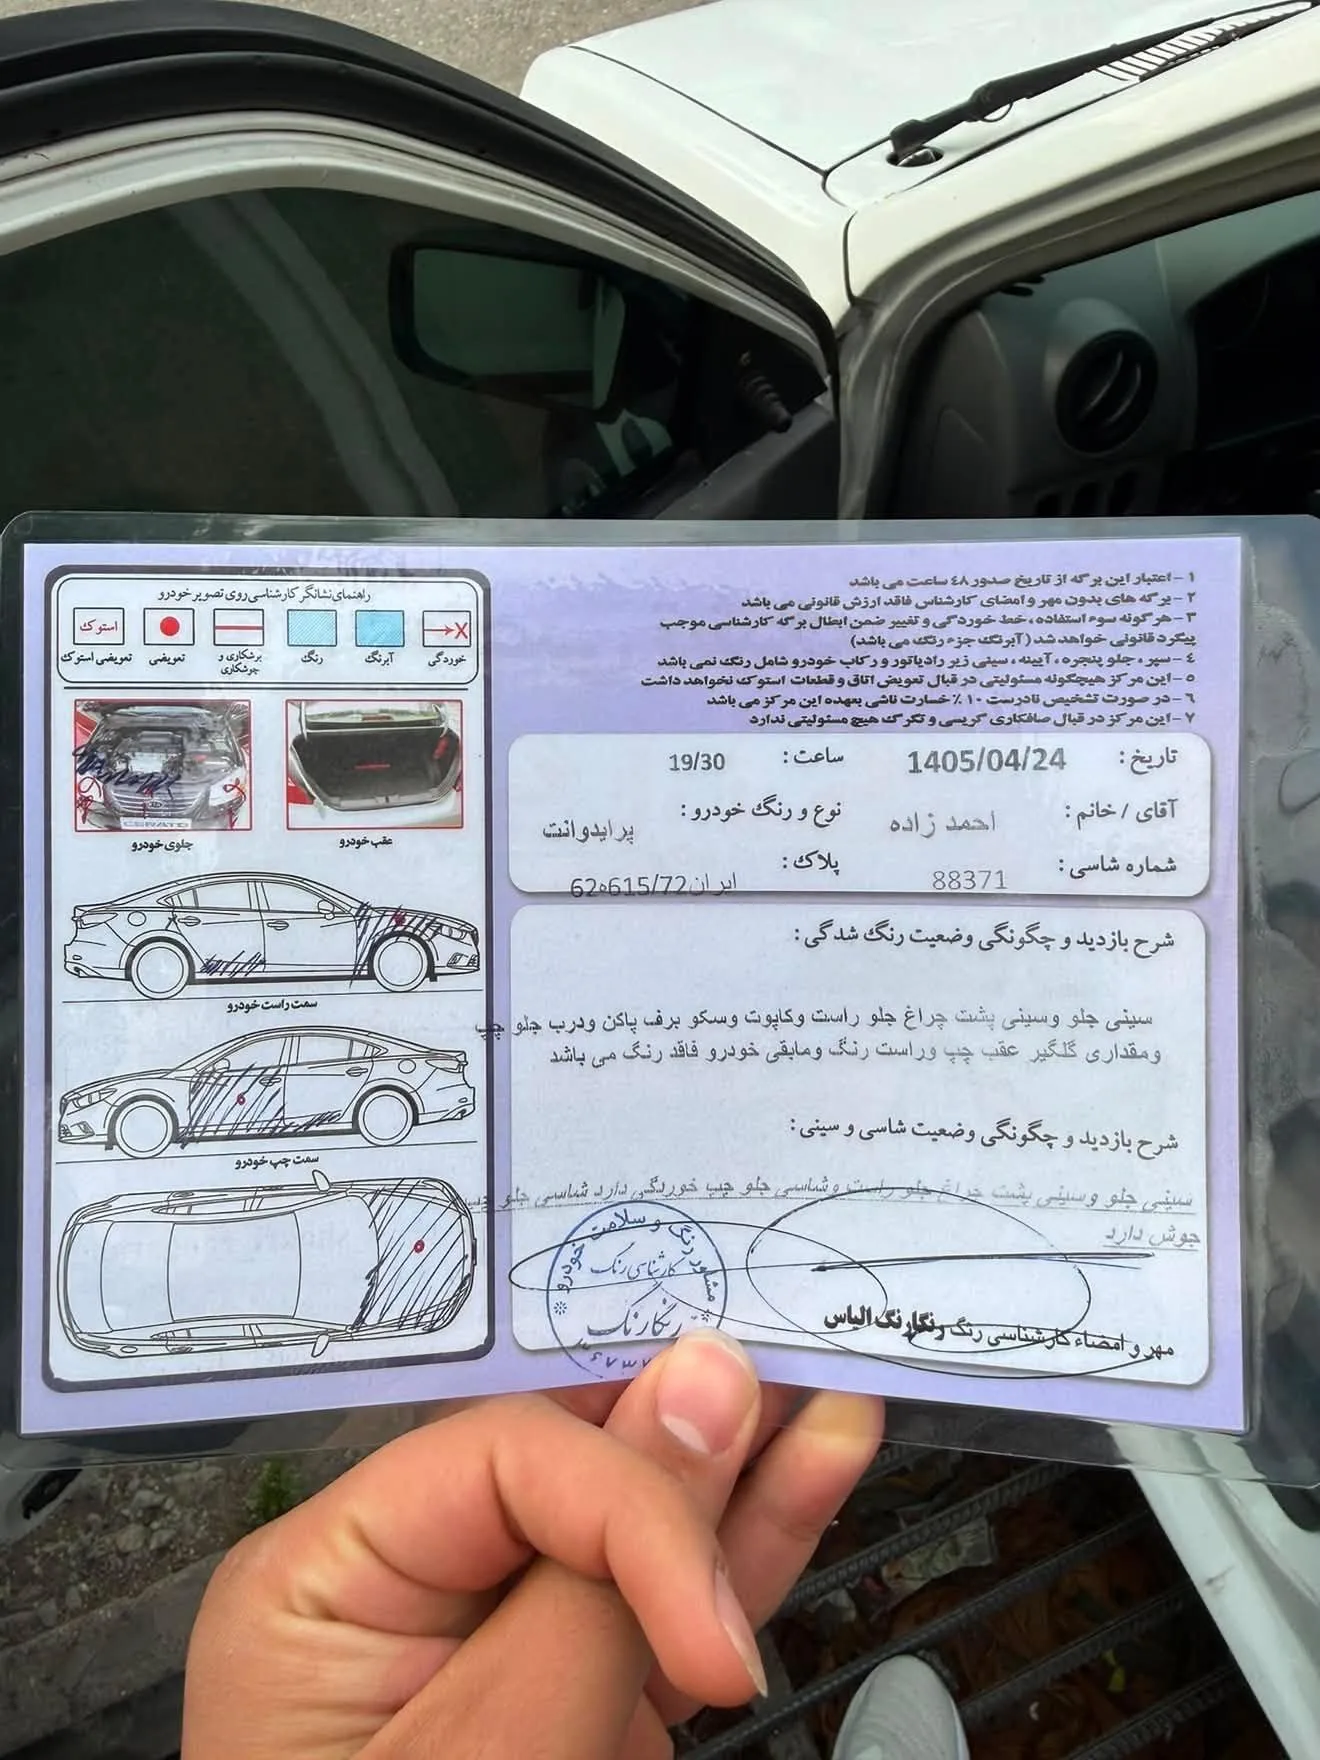 راهنمای نشانگر کارشناسی روی تصویر خودرو
استوک
X
تعویضی استوک
تعویضی
برشکاری و جوشکاری
رنگ
آبرنگ
خوردگی
CERATO
جلوی خودرو
عقب خودرو
سمت راست خودرو
سمت چپ خودرو
۱ - اعتبار این برگه از تاریخ صدور ۴۸ ساعت می باشد
۲ - برگه های بدون مهر و امضای کارشناس فاقد ارزش قانونی می باشد
۳ - هر گونه سوء استفاده ، خط خوردگی و تغییر ضمن ابطال برگه کارشناسی موجب
پیگرد قانونی خواهد شد (آبرنگ جزء رنگ می باشد)
۴ - سپر ، جلو پنجره ، آیینه ، سینی زیر رادیاتور و رکاب خودرو شامل رنگ نمی باشد
۵ - این مرکز هیچگونه مسئولیتی در قبال تعویض اتاق و قطعات استوک نخواهد داشت
۶ - در صورت تشخیص نادرست ۱۰٪ خسارت ناشی بعهده این مرکز می باشد
۷ - این مرکز در قبال صافکاری گریسی و تگرگ هیچ مسئولیتی ندارد
تاریخ : 1405/04/24 ساعت : 19/30
آقای / خانم : احمد زاده نوع و رنگ خودرو : پرایدوانت
شماره شاسی : 88371 پلاک : ایران72/615ه62
شرح بازدید و چگونگی وضعیت رنگ شدگی :
سینی جلو وسینی پشت چراغ جلو راست وکاپوت وسکو برف پاکن ودرب جلو چپ
ومقداری گلگیر عقب چپ وراست رنگ ومابقی خودرو فاقد رنگ می باشد
شرح بازدید و چگونگی وضعیت شاسی و سینی :
سینی جلو وسینی پشت چراغ جلو راست وشاسی جلو چپ خوردگی دارد شاسی جلو چپ
جوش دارد
مشاور رنگ و سلامت خودرو
کارشناسی رنگ
رنگارنگ
مهر و امضاء کارشناسی رنگ رنگارنگ الیاس